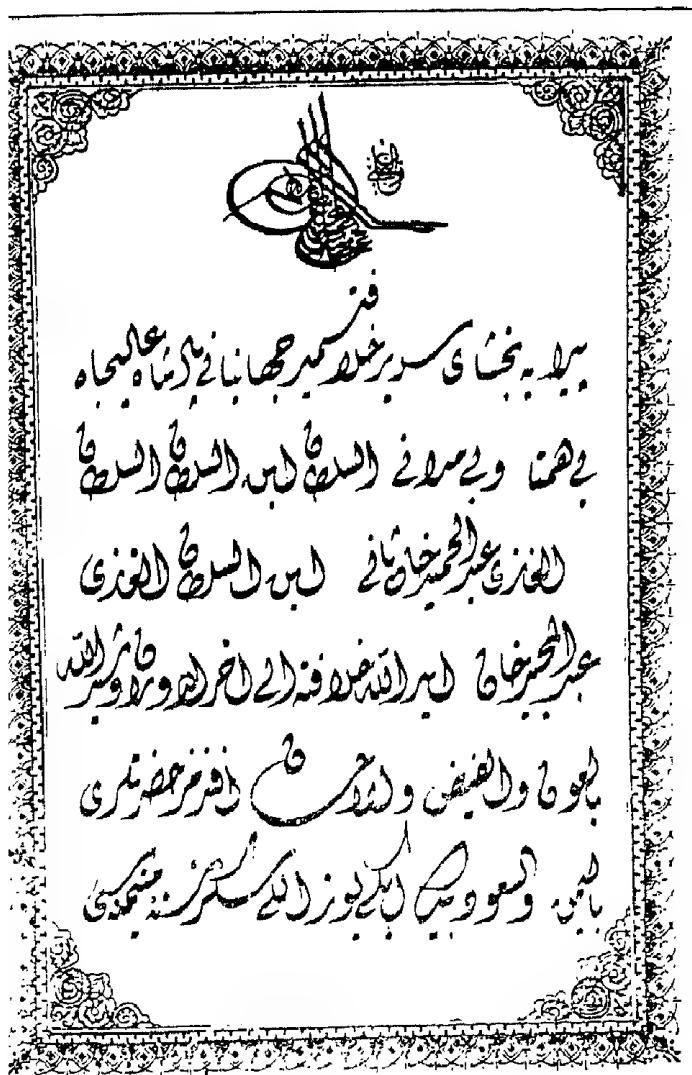 پيرايه بخشاى سرير خلافتسمير جهانبانى پادشاه عاليجاه
بى همتا و بى مدانى السلطان ابن السلطان السلطان
الغازى عبدالحميد خان ثانى ابن السلطان الغازى
عبدالمجيد خان ايد الله خلافته الى اخر الدوران الله
بالعون والفيض والاحسان افندمز حضرتلرى
باليمن والسعود بيك ايكيوز اللى سكز سنه